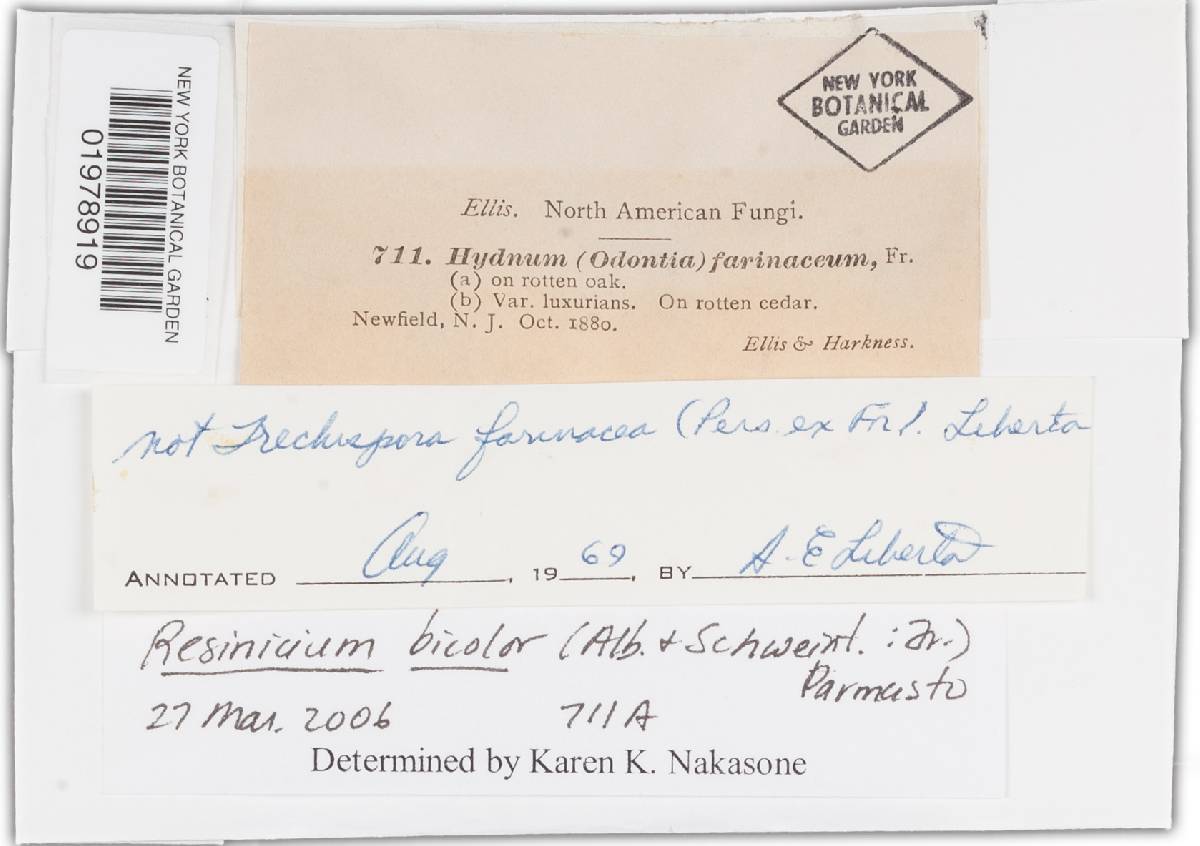 NEW YORK BOTANICAL GARDEN
01978919
NEW YORK
BOTANICAL
GARDEN
Ellis. North American Fungi.
711. Hydnum (Odontia) farinaceum, Fr.
(a) on rotten oak.
(b) Var. luxurians. On rotten cedar.
Newfield, N. J. Oct. 1880.
Ellis & Harkness.
not Trechispora farinacea (Pers. ex Fr). Liberta
ANNOTATED Aug, 1969, BY A. E Liberta
Resinicium bicolor (Alb. + Schweint. : Fr.)
Parmasto
27 Mar. 2006 711A
Determined by Karen K. Nakasone